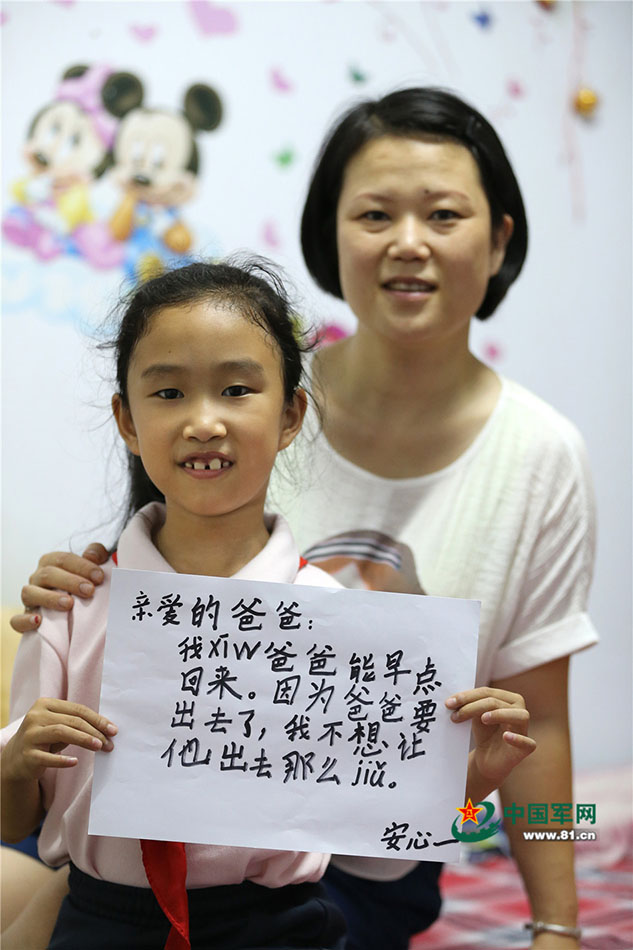 亲爱的爸爸：
我xīw爸爸能早点
回来。因为爸爸要
出去了，我不想让
他出去那么jiǔ。
安心一
中国军网
www.81.cn